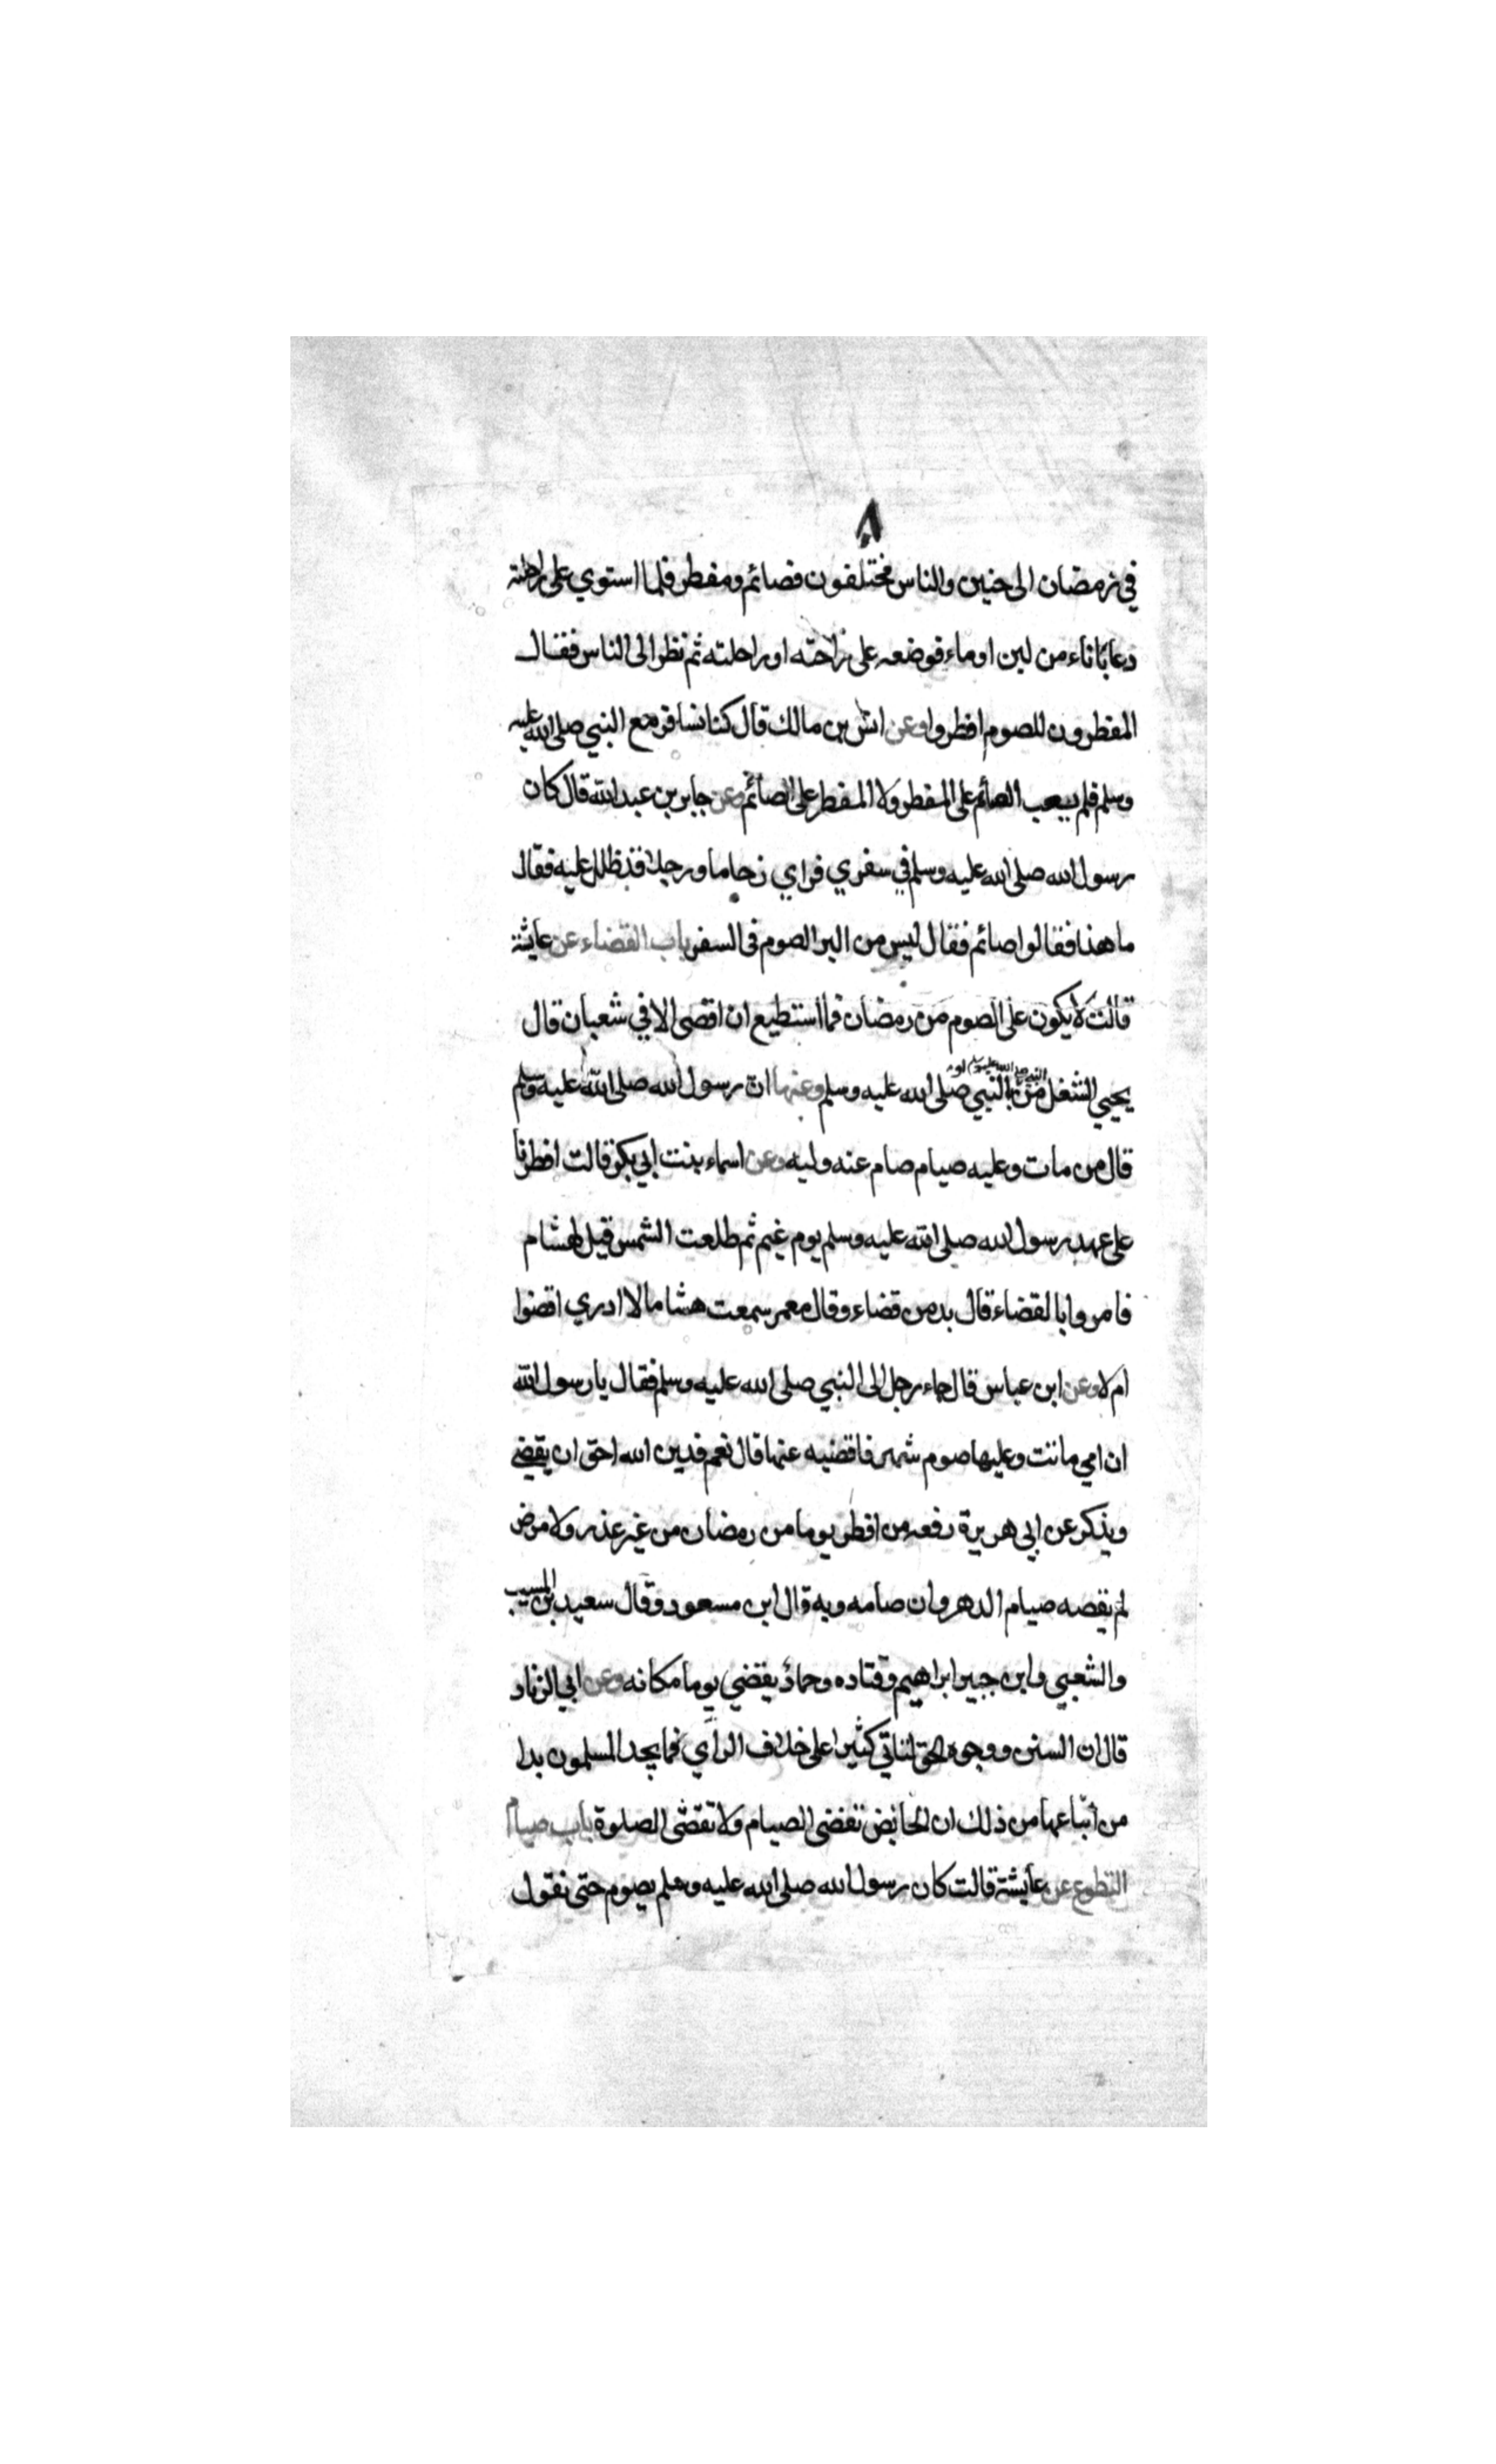 ٨
في رمضان الى حنين والناس مختلفون فصائم ومفطر فلما استوي على راحلته
دعا باناء من لبن او ماء فوضعه على راحته او راحلته ثم نظر الى الناس فقال
المفطرون للصوم افطروا وعن انس بن مالك قال كنا نسافر مع النبي صلى الله عليه
وسلم فلم يعب الصائم على المفطر ولا المفطر على الصائم وعن جابر بن عبد الله قال كان
رسول الله صلى الله عليه وسلم في سفري فراي زحاما ورجلا قد ظلل عليه فقال
ما هذا فقالوا صائم فقال ليس من البر الصوم فى السفر باب القضاء عن عايشة
قالت لا يكون على الصوم من رمضان فما استطيع ان اقضى الا في شعبان قال
يحيي الشغل من النبي صلى الله عليه وسلم او بالنبي صلى الله عليه وسلم وعنها ان رسول الله صلى الله عليه وسلم
قال من مات وعليه صيام صام عنه وليه وعن اسماء بنت ابي بكر قالت افطرنا
على عهد رسول الله صلى الله عليه وسلم يوم غيم ثم طلعت الشمس قيل لهشام
فامروا بالقضاء قال بد من قضاء وقال معمر سمعت هشاما لا ادري اقضوا
ام لا وعن ابن عباس قال جاء رجل الى النبي صلى الله عليه وسلم فقال يا رسول الله
ان امي ماتت وعليها صوم شهر فاقضيه عنها قال نعم فدين الله احق ان يقضى
ويذكر عن ابي هريرة رفعه من افطر يوما من رمضان من غير عذر ولا مرض
لم يقضه صيام الدهر وان صامه وبه قال ابن مسعود وقال سعيد بن المسيب
والشعبي وابن جبير ابراهيم وقتاده وحماد يقضي يوما مكانه وعن ابي الزناد
قال ان السنن ووجوه الحق لتاتي كثيرا على خلاف الراي فما يجد المسلمون بدا
من اتباعها من ذلك ان الحايض تقضى الصيام ولا تقضى الصلوة باب صيام
التطوع عن عايشة قالت كان رسول الله صلى الله عليه وسلم يصوم حتى نقول